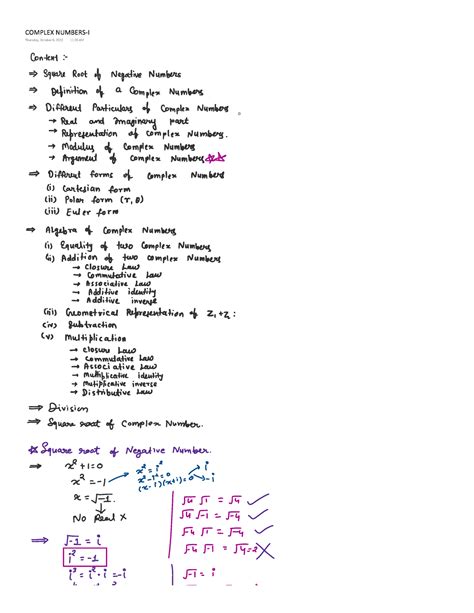 COMPLEX NUMBERS-I
Content :-
⇒ Square Root of Negative Numbers
⇒ Definition of a Complex Numbers
⇒ Different Particulars of Complex Numbers
→ Real and Imaginary part
→ Representation of Complex Numbers.
→ Modulus of Complex Numbers
→ Argument of Complex Numbers ☆☆
⇒ Different forms of Complex Numbers
(i) Cartesian form
(ii) Polar form (r, θ)
(iii) Euler form
⇒ Algebra of Complex Numbers
(i) Equality of two Complex Numbers
(ii) Addition of two Complex Numbers
→ Closure Law
→ Commutative Law
→ Associative Law
→ Additive identity
→ Additive inverse
(iii) Geometrical Representation of Z₁+Z₂:
(iv) Subtraction
(v) Multiplication
→ Closure Law
→ Commutative Law
→ Associative Law
→ Multiplicative identity
→ Multiplicative inverse
→ Distributive Law
⇒ Division
⇒ Square root of Complex Number.
☆ Square root of Negative Number.
⇒ x²+1=0
x² = -1
x² = i²
x²-i²=0
(x-i)(x+i)=0
i
-i
x = √-1
No Real X
⇒ √-1 = i
i² = -1
i³ = i²·i = -i
√4 √1 = √4 ✓
√4 √-1 = √-4 ✓
√-4 √1 = √-4 ✓
√-4 √-1 = √4=2 ✗
√-1 = i